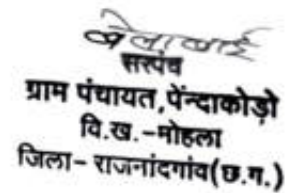 बेलाबाई
सरपंच
ग्राम पंचायत,पेंन्दाकोड़ो
वि.ख.-मोहला
जिला- राजनांदगांव(छ.ग.)